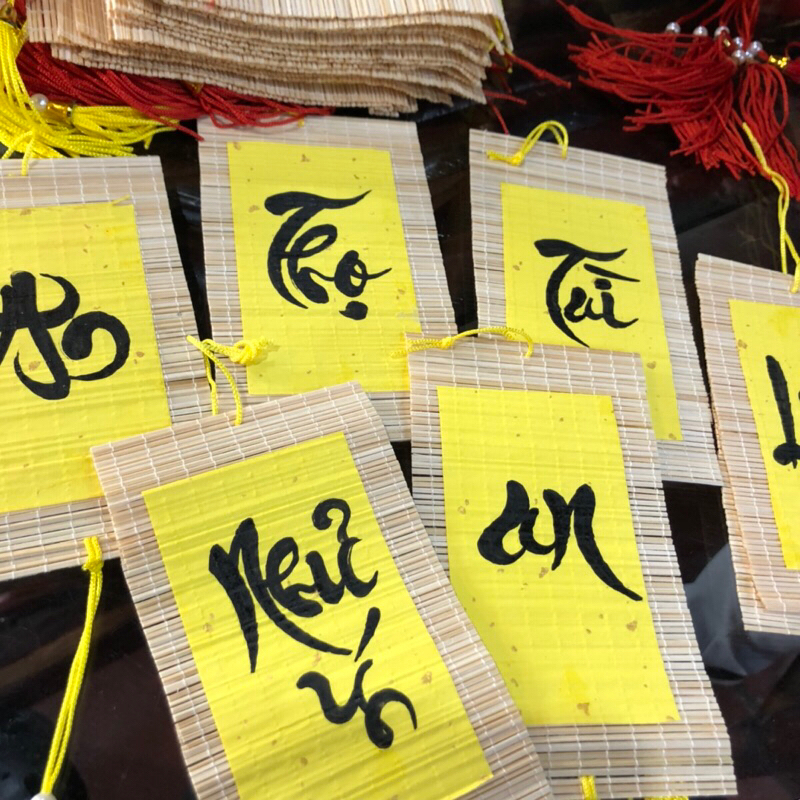 Thọ
Tài
an
Như
ý